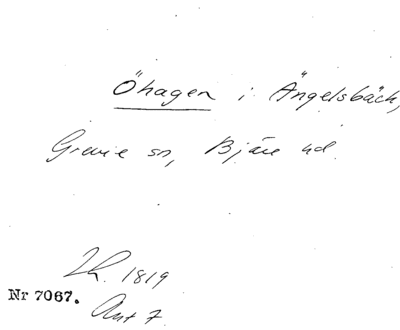 Öhagen i Ängelsbäck,
Grevie sn, Bjäre hd
Lh. 1819
Nr 7067.
Ant 7